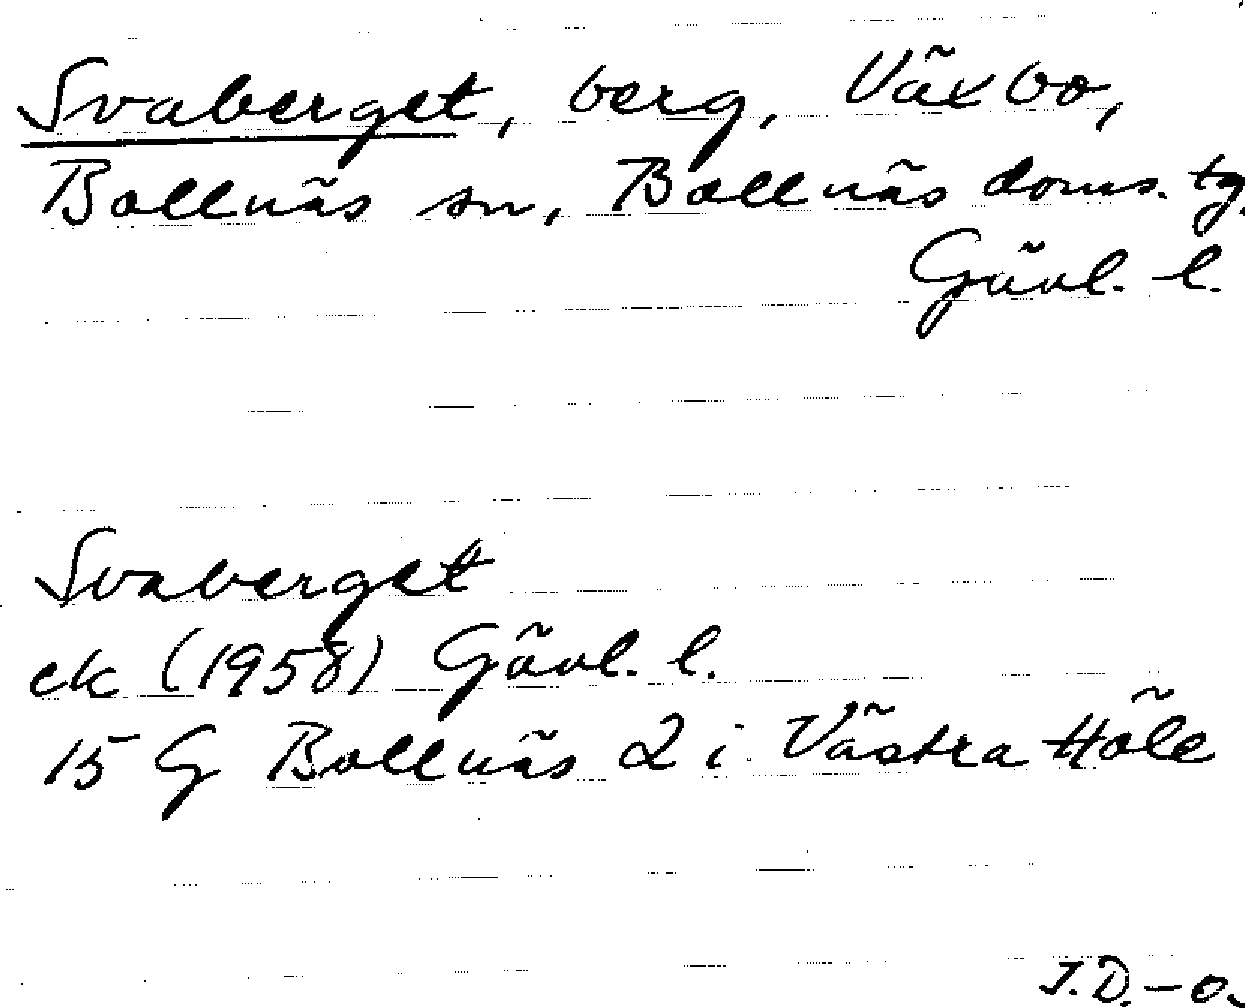 Svaberget, berg, Växbo,
Bollnäs sn, Bollnäs doms. tg.
Gävl. l.
Svaberget
ek (1958) Gävl. l.
15 G Bollnäs 2 i Västra
J.D.-0.